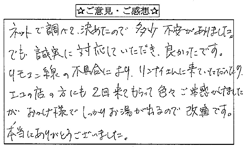 ☆ご意見・ご感想☆
ネットで調べて、決めたので 多少 不安がありました。
でも、誠実に対応していただき、良かったです。
リモコン線の不具合により、リンナイさんに来ていただいたり、
エコの店の方にも2回来てもらって色々ご迷惑かけました
が おかげ様で しっかりお湯が出るので 改適です。
本当にありがとうございました。